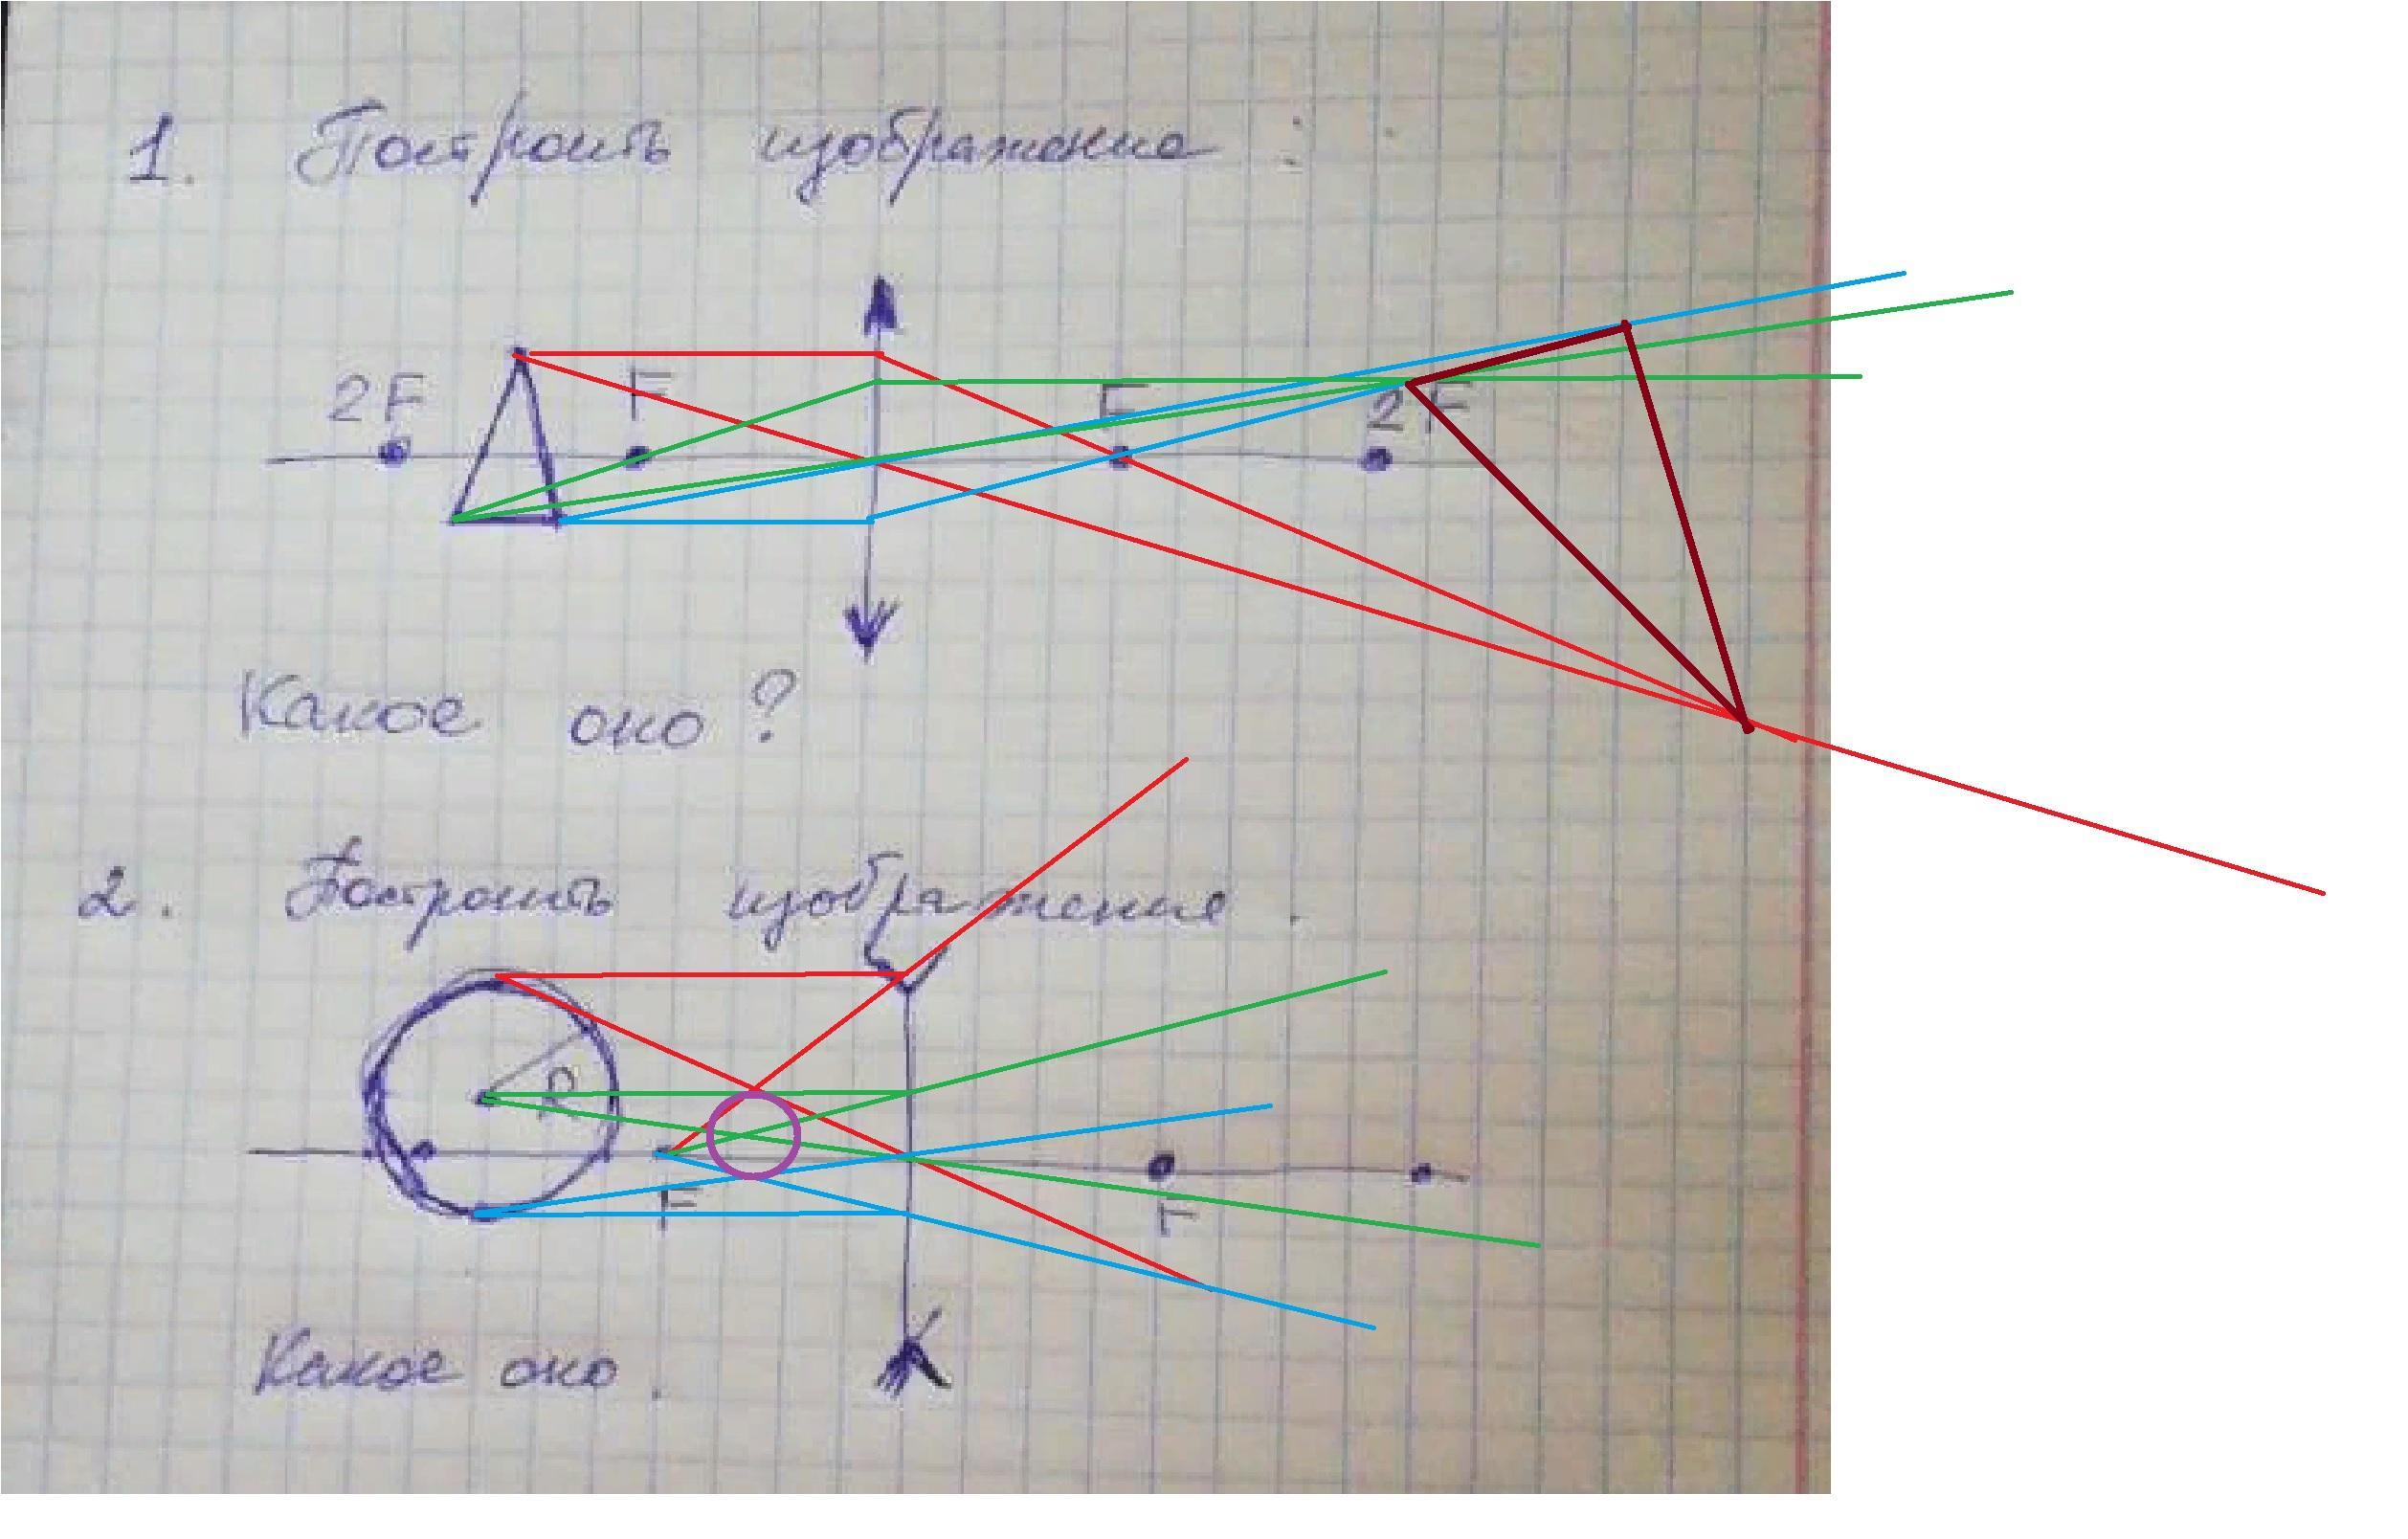 1. Построить изображение :
2F F F 2F
Какое оно ?
2. Построить изображение .
R
F F
Какое оно .